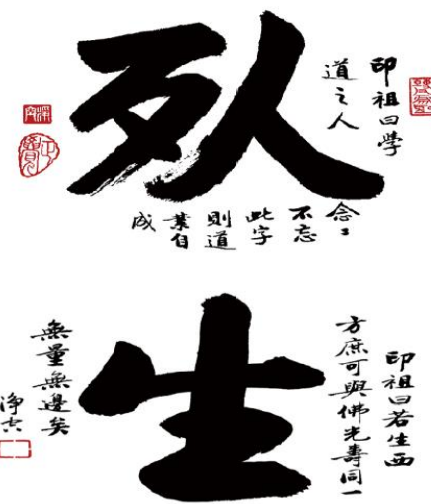 印祖曰學
道之人
死
念々
不忘
此字
則道
業自
成
印祖曰若生西
方庶可與佛光壽同一
生
無量無邊矣
淨空